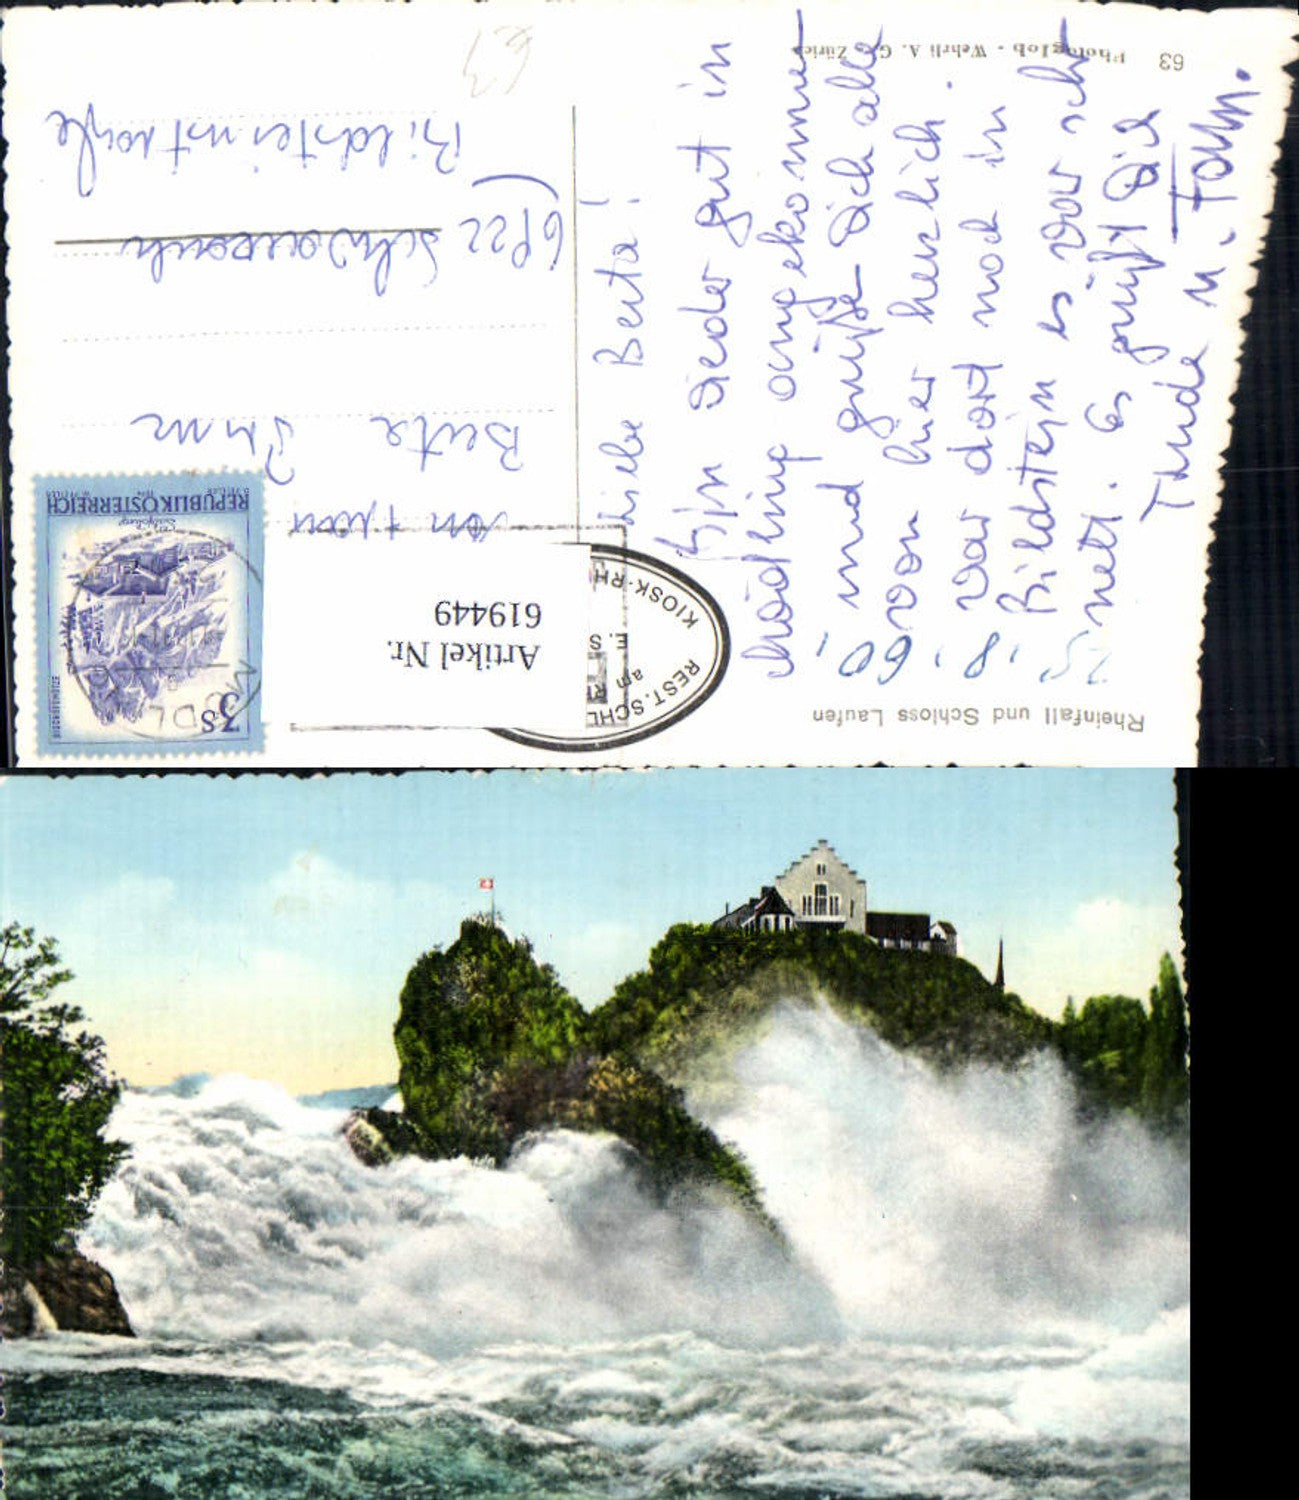 63
Photoglob - Wehrli A. G. Zürich
Rheinfall und Schloss Laufen
Liebe Berta!
Bin wieder gut in
Mödling angekommen
und grüße Dich alle
von hier herzlich.
war dort noch in
Bildstein es war sehr
nett. Es grüßt Dich
Trude u. Fam.
25.8.60,
KIOSK-RH
REST. SCHL
E. S
am R
Artikel Nr.
619449
3S
REPUBLIK ÖSTERREICH
Berta
6922
Bildsteinstraße
63